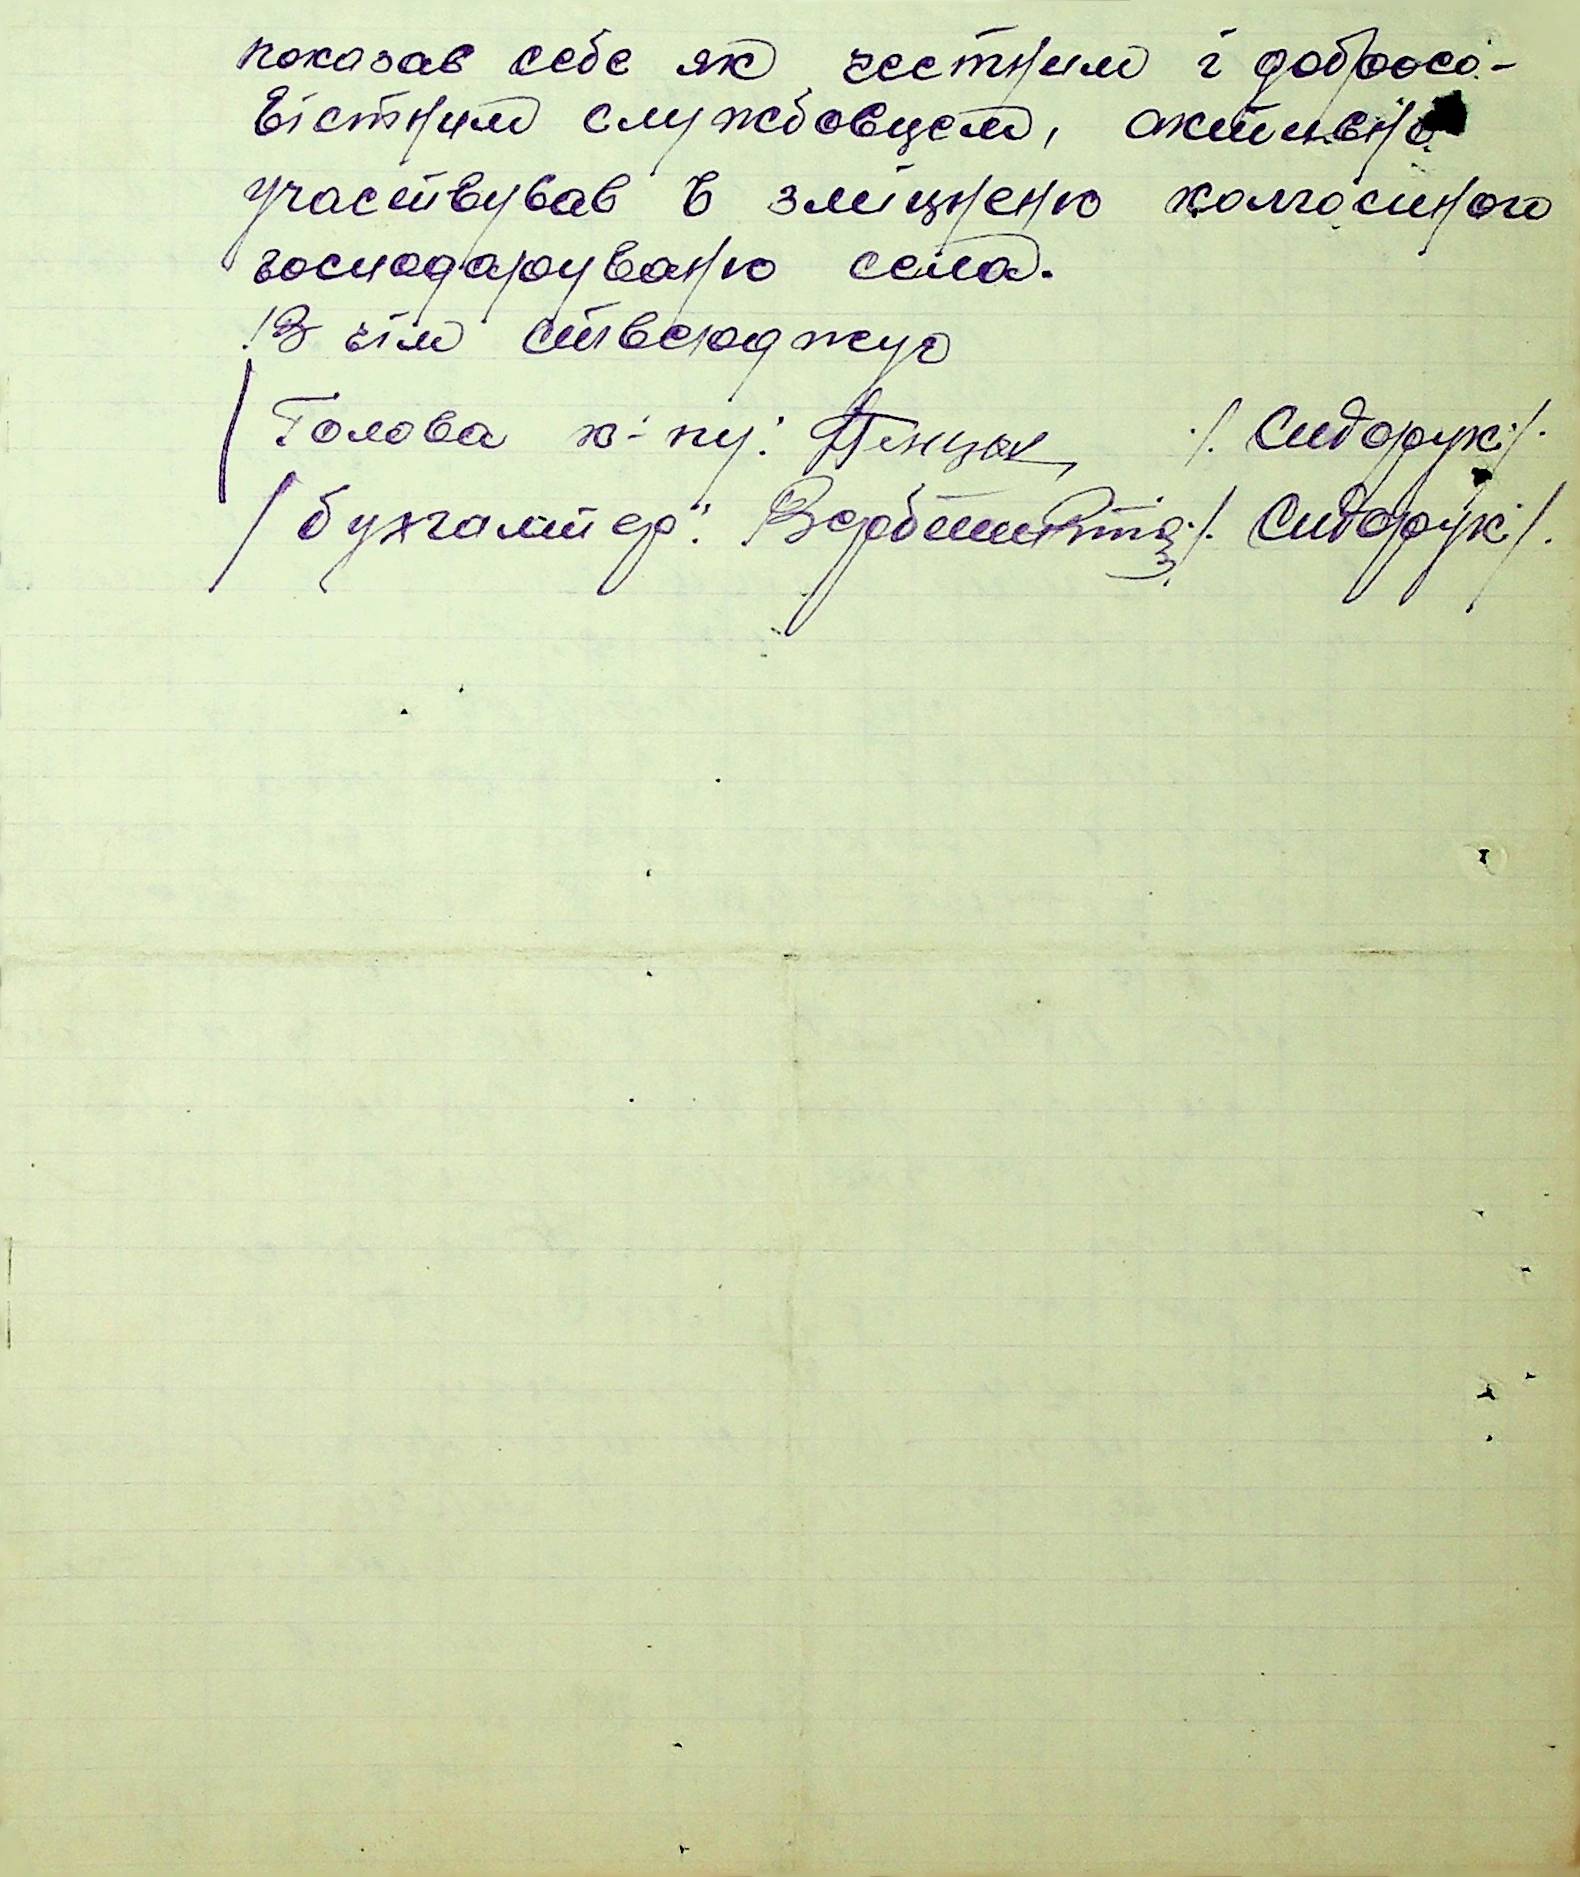 показав себе як чесним і добросо-
вістним службовцем, активно
участвував в зміцнені колгоспного
господарувань села.
В чім стверджую
Голова к-пу: ./. Сидорук ./.
бухгалтер: ./. Сидорук ./.